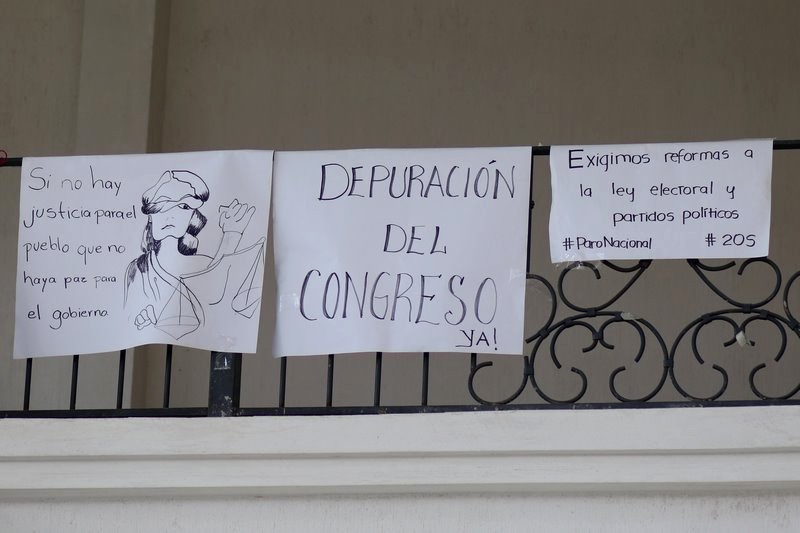 Si no hay
justicia para el
pueblo que no
haya paz para
el gobierno
DEPURACIÓN
DEL
CONGRESO
YA!
Exigimos reformas a
la ley electoral y
partidos políticos
#ParoNacional #205